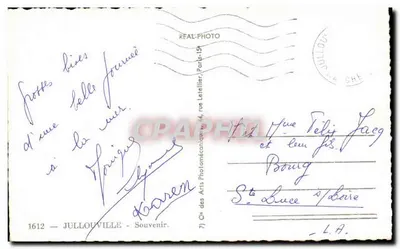 REAL-PHOTO
Grosses bises
d'une belle journée
à la mer.
Monique
Karen
1612 - JULLOUVILLE - Souvenir.
7) Cie des Arts Photomécaniques, 44, rue Letellier, Paris-15e
CARTE POSTALE
Mme Félix Jacq
et leur fils
Bourg
Ste Luce s/Loire
L.A.